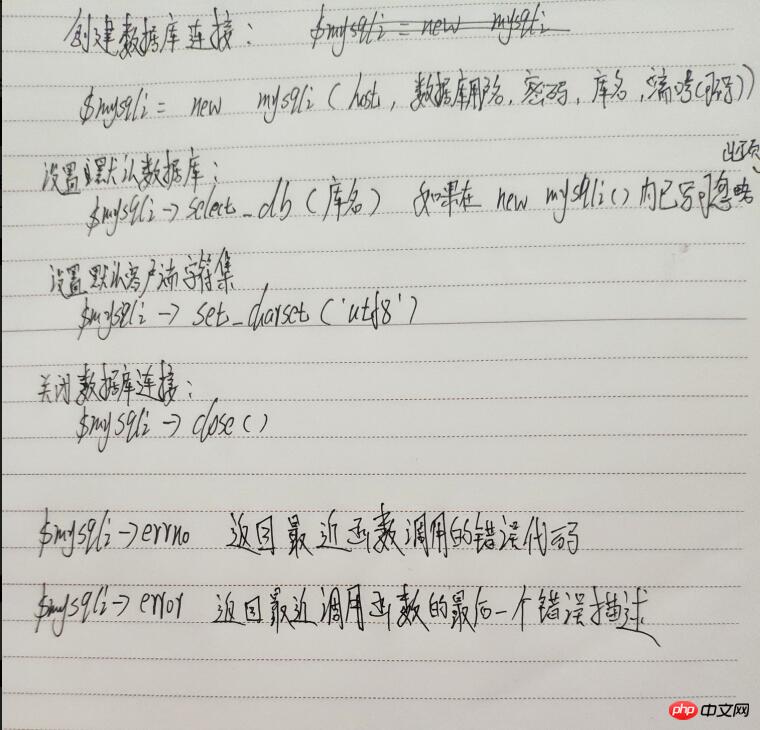 创建数据库连接: $mysqli = new mysqli
$mysqli = new mysqli ( host, 数据库用户名, 密码, 库名, 端口号(可写))
此项
设置默认数据库:
$mysqli -> select_db ( 库名 ) 如果在 new mysqli() 内已写可忽略
设置默认客户端字符集
$mysqli -> set_charset ('utf8')
关闭数据库连接:
$mysqli -> close ()
$mysqli -> errno 返回最近函数调用的错误代码
$mysqli -> error 返回最近调用函数的最后一个错误描述
php 中文网